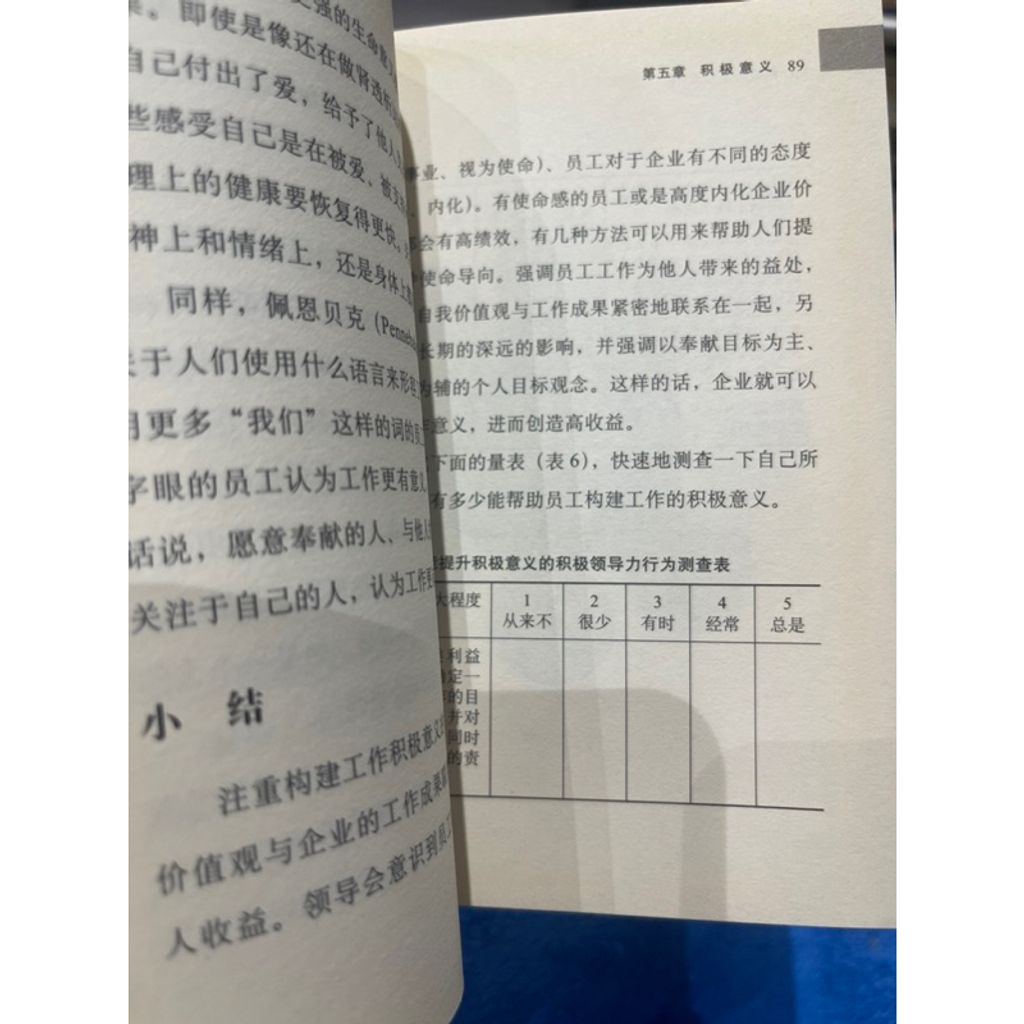 更强的生命意
果。即使是像还在做肾透析
自己付出了爱，给予了他人
些感受自己是在被爱、被支
理上的健康要恢复得更快。
神上和情绪上，还是身体上
同样，佩恩贝克（Penneba
关于人们使用什么语言来形容
用更多“我们”这样的词的员
字眼的员工认为工作更有意义
话说，愿意奉献的人、与他人
关注于自己的人，认为工作更
小 结
注重构建工作积极意义
价值观与企业的工作成果
人收益。领导会意识到员
第五章 积极意义 89
事业、视为使命）、员工对于企业有不同的态度
内化）。有使命感的员工或是高度内化企业价
会有高绩效，有几种方法可以用来帮助人们提
使命导向。强调员工工作为他人带来的益处，
自我价值观与工作成果紧密地联系在一起，另
长期的深远的影响，并强调以奉献目标为主、
为辅的个人目标观念。这样的话，企业就可以
意义，进而创造高收益。
下面的量表（表6），快速地测查一下自己所
有多少能帮助员工构建工作的积极意义。
提升积极意义的积极领导力行为测查表
大程度 1 2 3 4 5
从来不 很少 有时 经常 总是
利益
定一
的目
并对
同时
的责